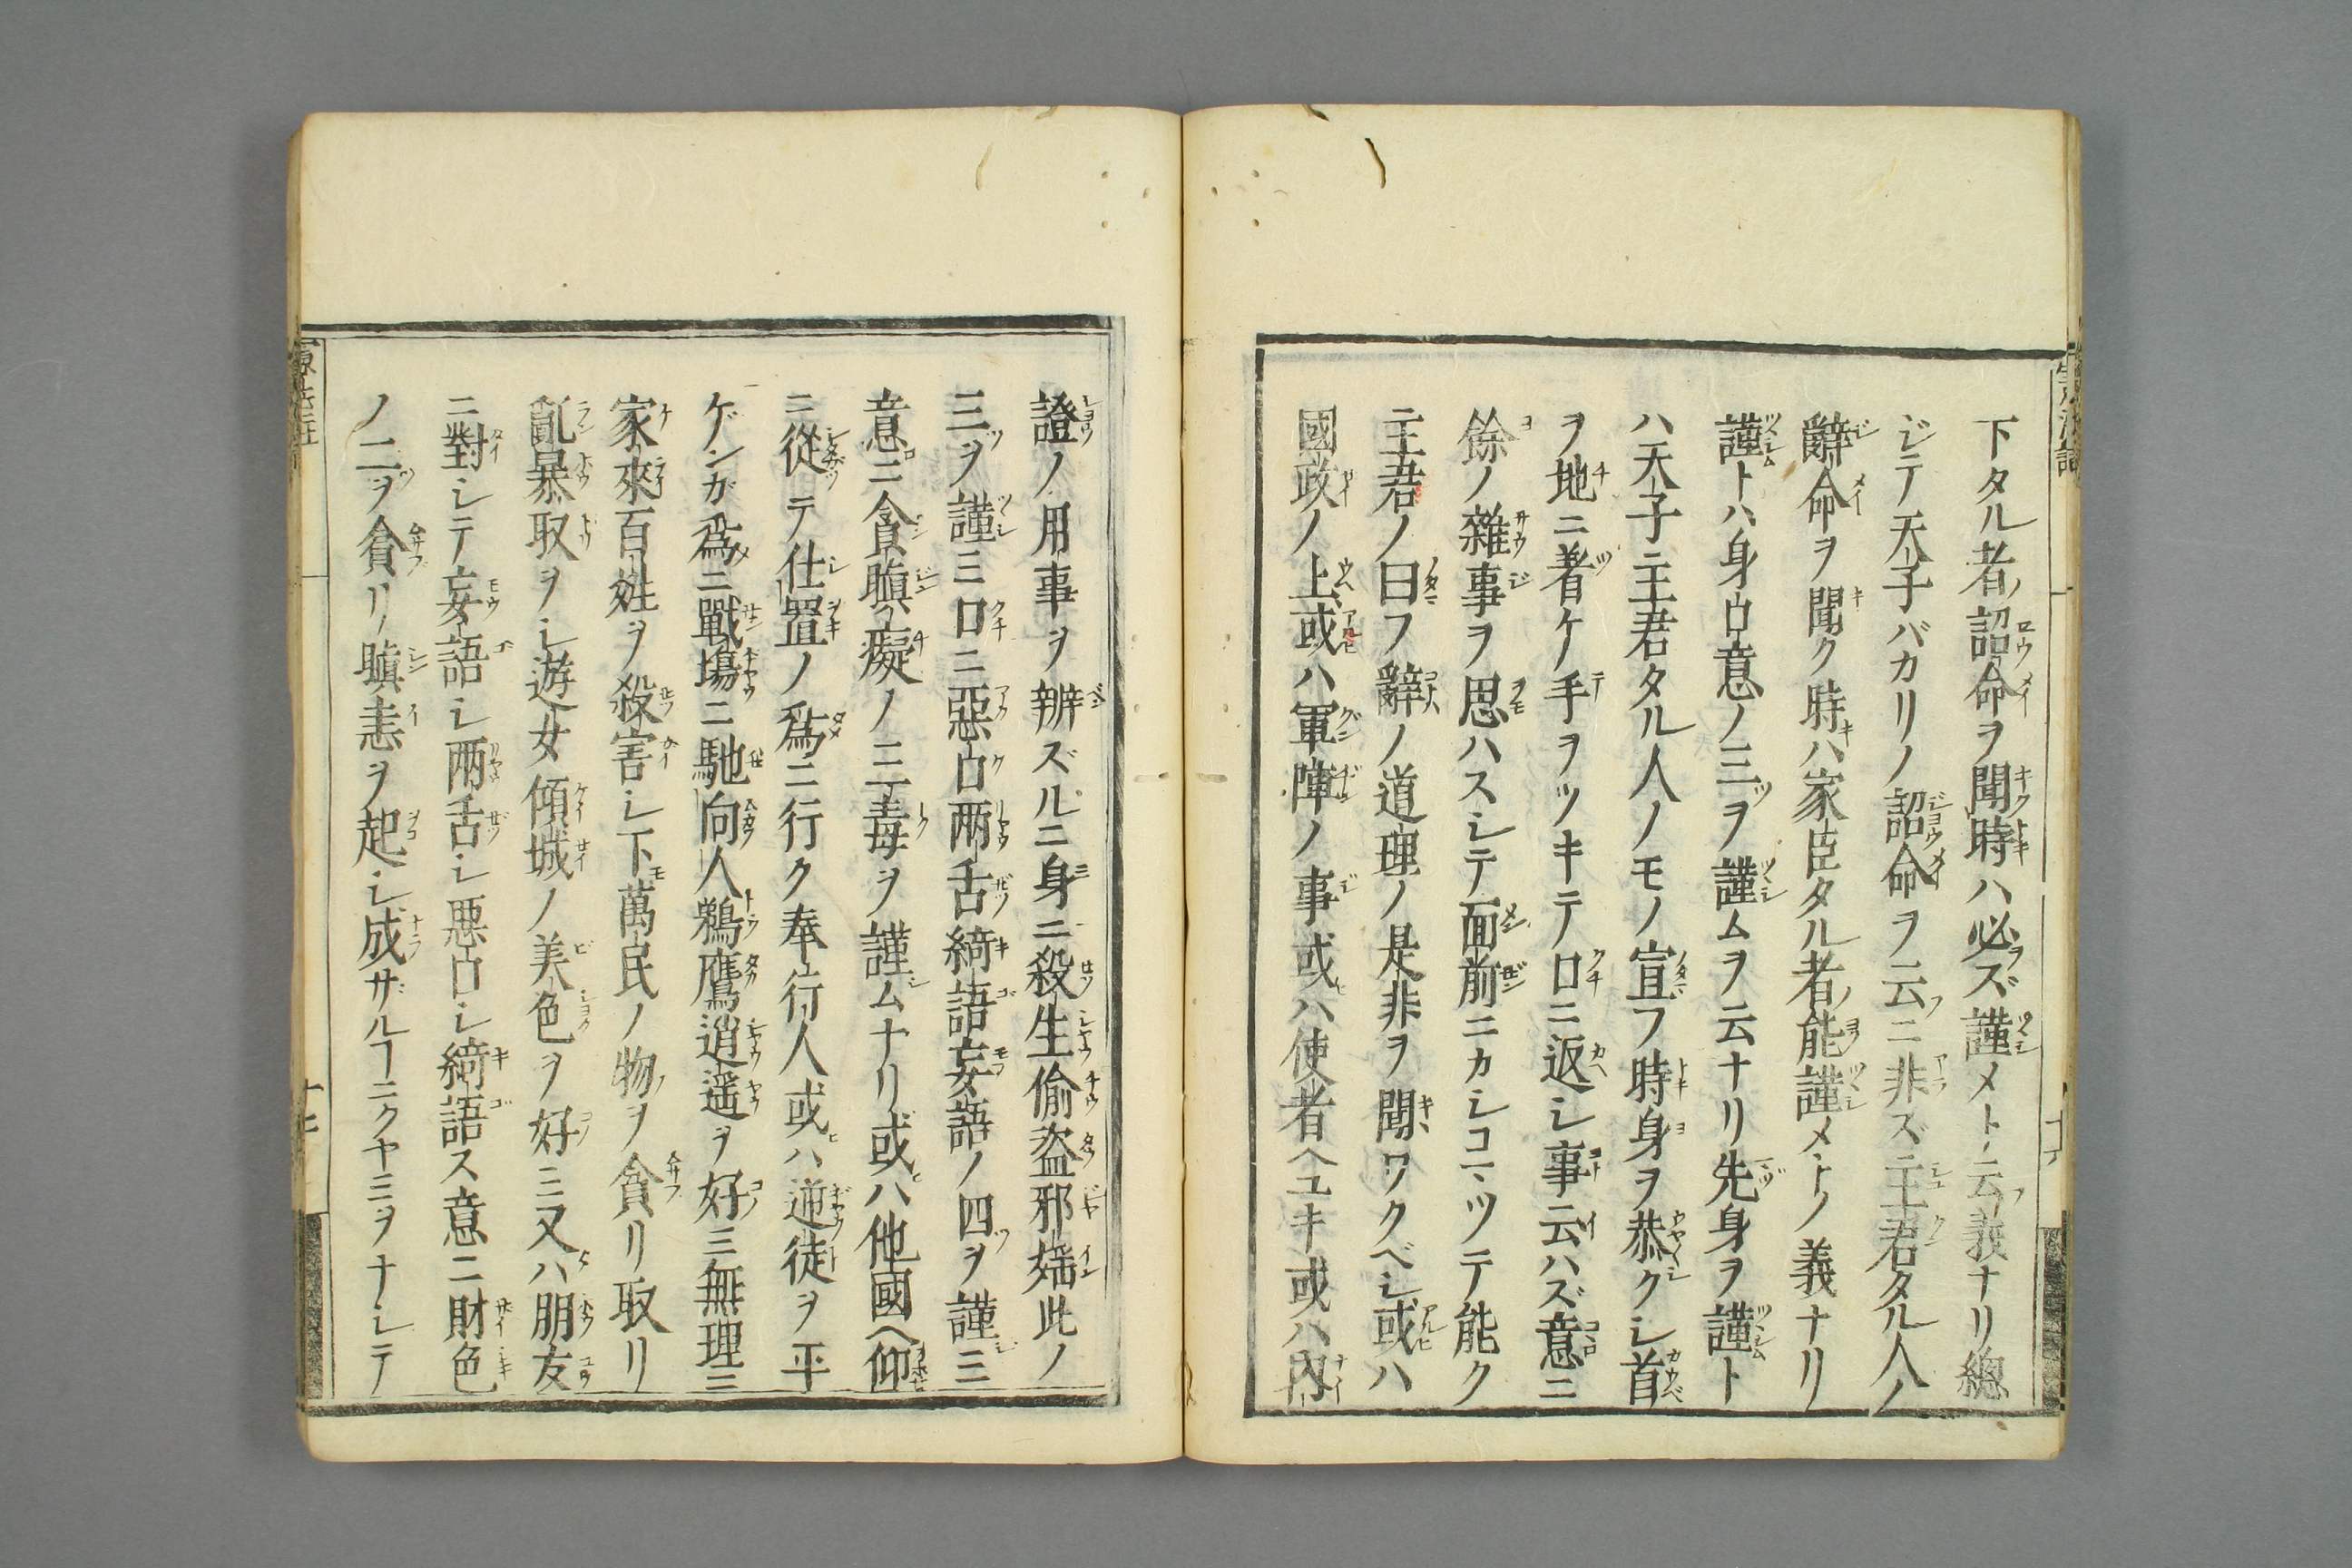 下タル者ノ詔命ヲ聞時ハ必ズ謹メト云義ナリ總
ジテ天子バカリノ詔命ヲ云ニ非ズ主君タル人ノ
辭命ヲ聞ク時ハ家臣タル者ノ能謹メトノ義ナリ
謹トハ身口意ノ三ヲ謹ムヲ云ナリ先身ヲ謹ト
ハ天子主君タル人ノモノ宣フ時身ヲ恭クシ首
ヲ地ニ著ケ手ヲツキテ口ニ返シ事云ハズ意ニ
餘ノ雜事ヲ思ハスシテ面前ニカシコマツテ能ク
主君ノ曰フ辭ノ道理ノ是非ヲ聞ワクベシ或ハ
國政ノ上或ハ軍陣ノ事或ハ使者ヘユキ或ハ内
證ノ用事ヲ辨ズルニ身ニ殺生偷盗邪婬此ノ
三ヲ謹ミ口ニ惡口两舌綺語妄語ノ四ヲ謹ミ
意ニ貪瞋癡ノ三毒ヲ謹ムナリ或ハ他國ヘ仰
ニ從テ仕置ノ爲ニ行ク奉行人或ハ逆徒ヲ平
ゲンガ爲ニ戰塲ニ馳向人鵜鷹逍遥ヲ好ミ無理ニ
家來百姓ヲ殺害シ下萬民ノ物ヲ貪リ取リ
亂暴取ヲシ遊女傾城ノ美色ヲ好ミ又ハ朋友
ニ對シテ妄語シ两舌シ惡口シ綺語ス意ニ財色
ノ二ヲ貪リ瞋恚ヲ起シ成サルヿニクヤミヲナシテ